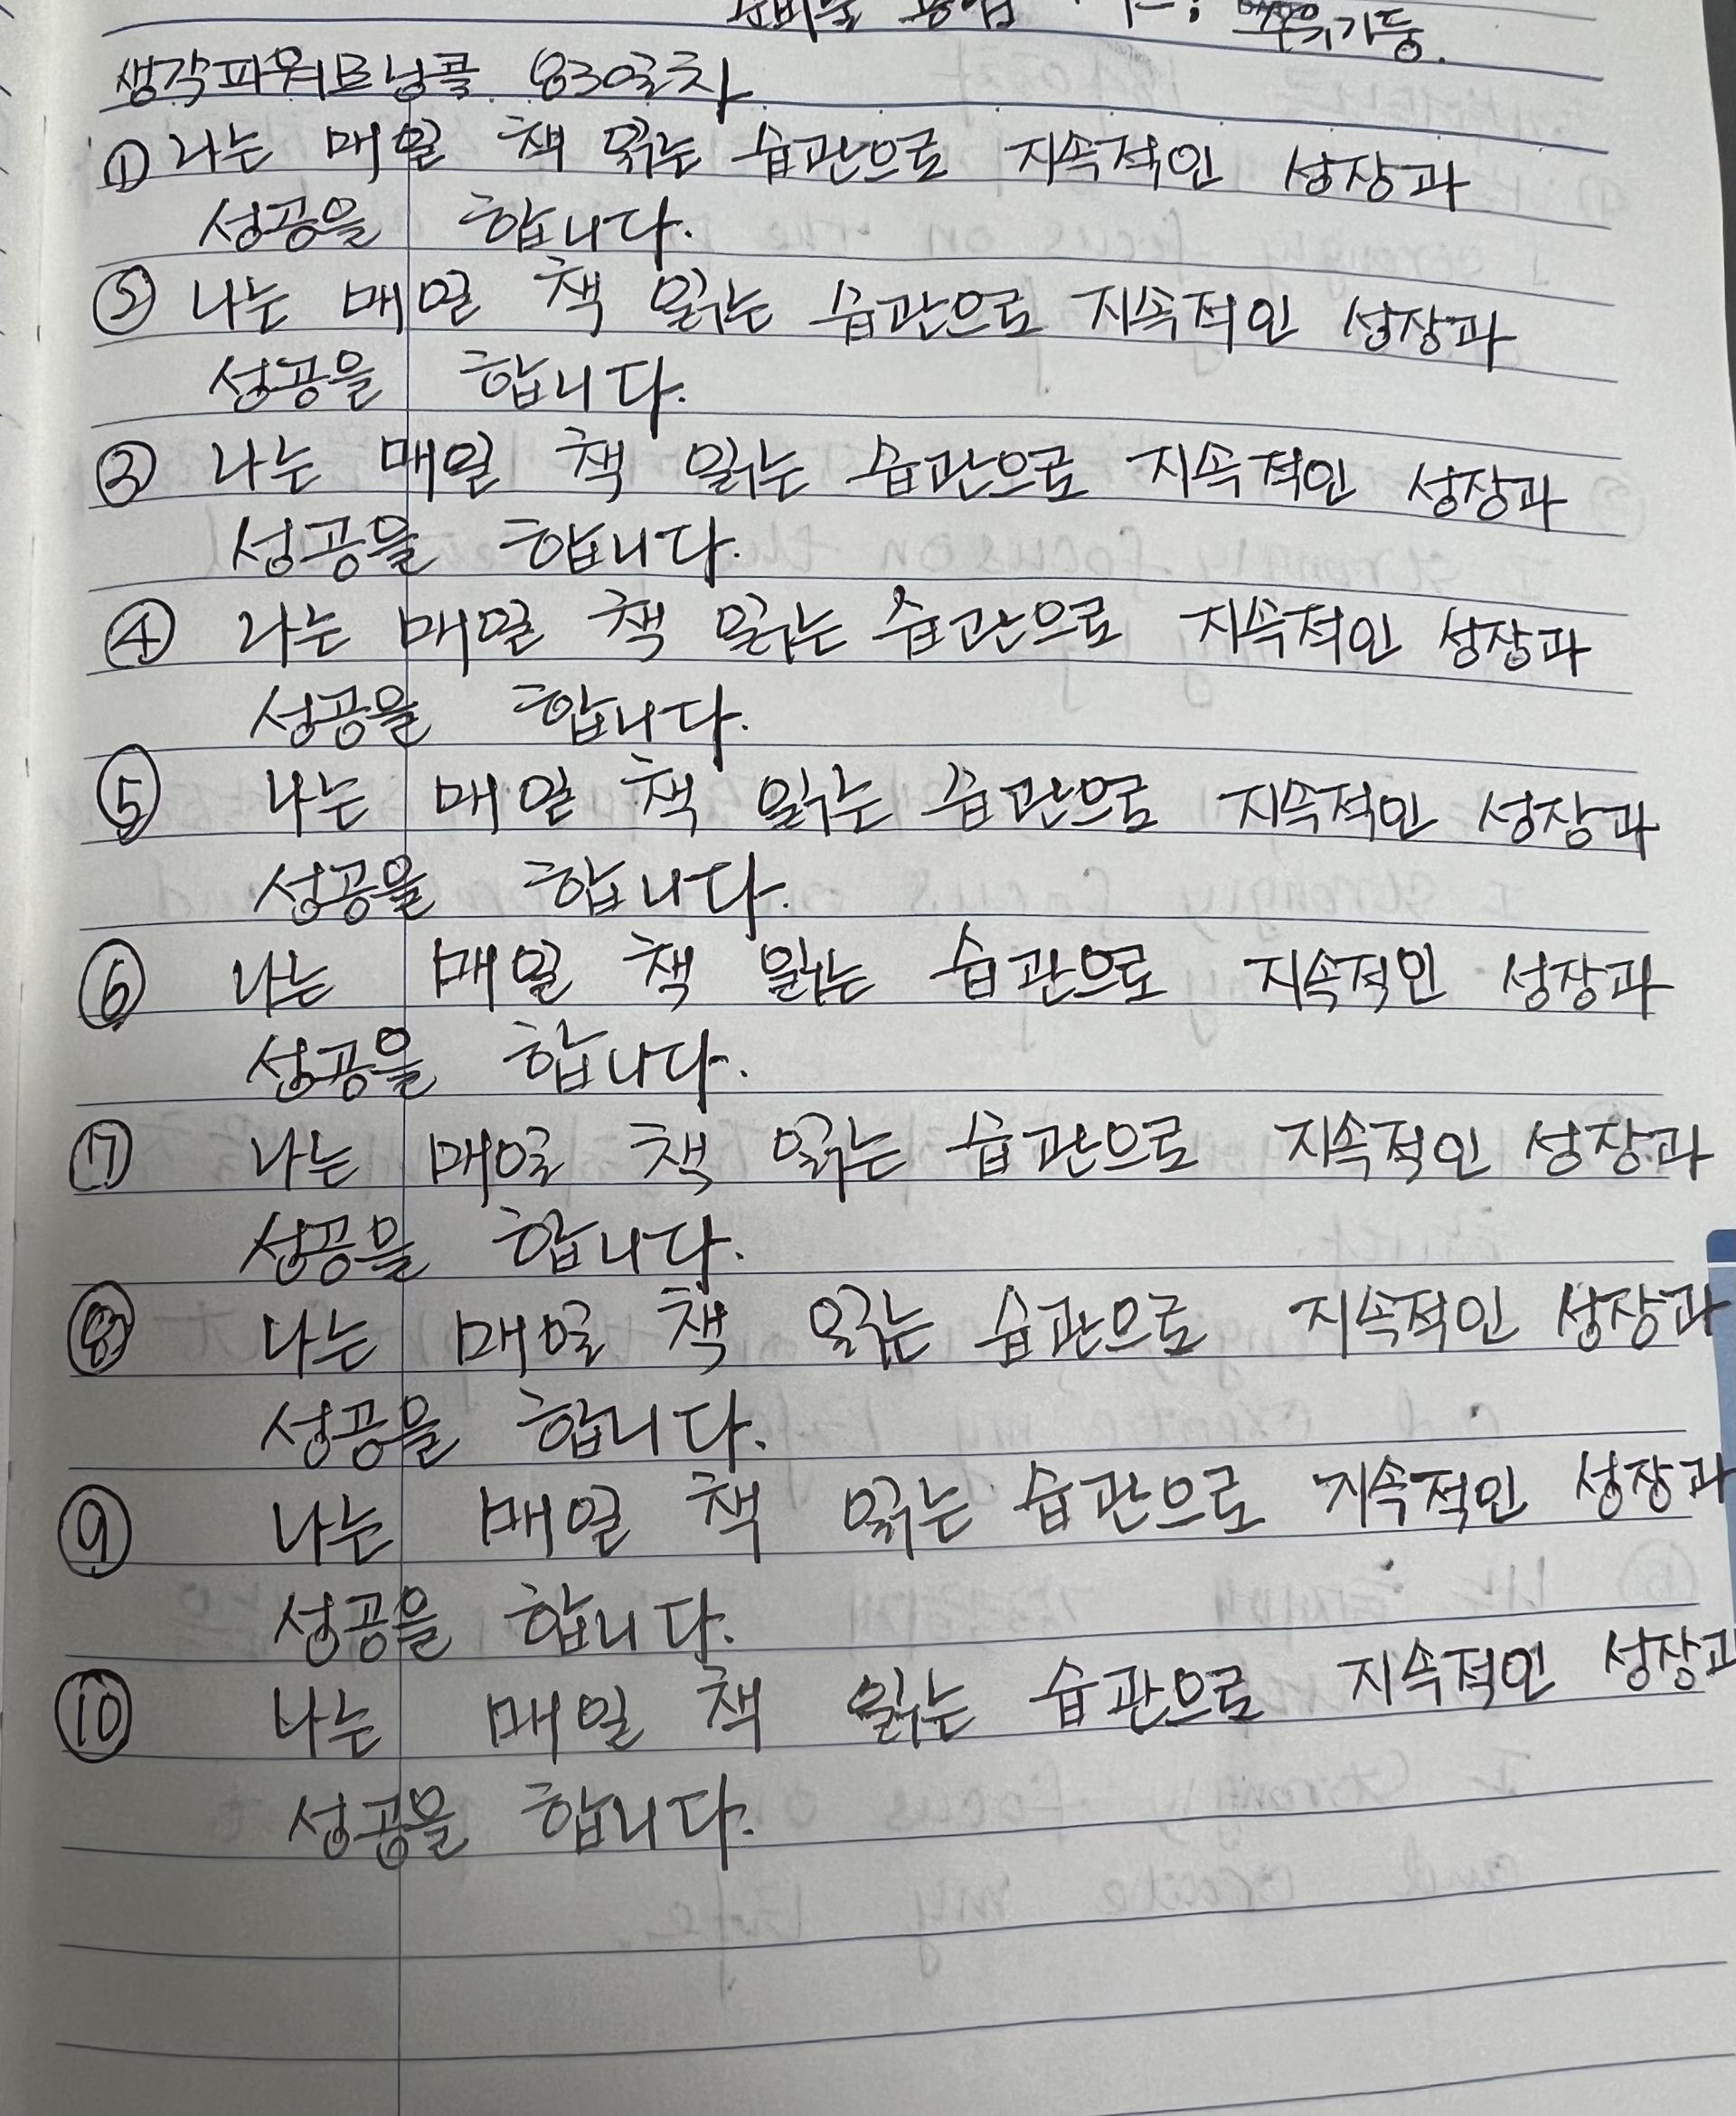 생각파워모닝콜 830일차
① 나는 매일 책 읽는 습관으로 지속적인 성장과
성공을 합니다.
② 나는 매일 책 읽는 습관으로 지속적인 성장과
성공을 합니다.
③ 나는 매일 책 읽는 습관으로 지속적인 성장과
성공을 합니다.
④ 나는 매일 책 읽는 습관으로 지속적인 성장과
성공을 합니다.
⑤ 나는 매일 책 읽는 습관으로 지속적인 성장과
성공을 합니다.
⑥ 나는 매일 책 읽는 습관으로 지속적인 성장과
성공을 합니다.
⑦ 나는 매일 책 읽는 습관으로 지속적인 성장과
성공을 합니다.
⑧ 나는 매일 책 읽는 습관으로 지속적인 성장과
성공을 합니다.
⑨ 나는 매일 책 읽는 습관으로 지속적인 성장과
성공을 합니다.
⑩ 나는 매일 책 읽는 습관으로 지속적인 성장과
성공을 합니다.